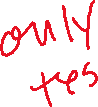 only
yes